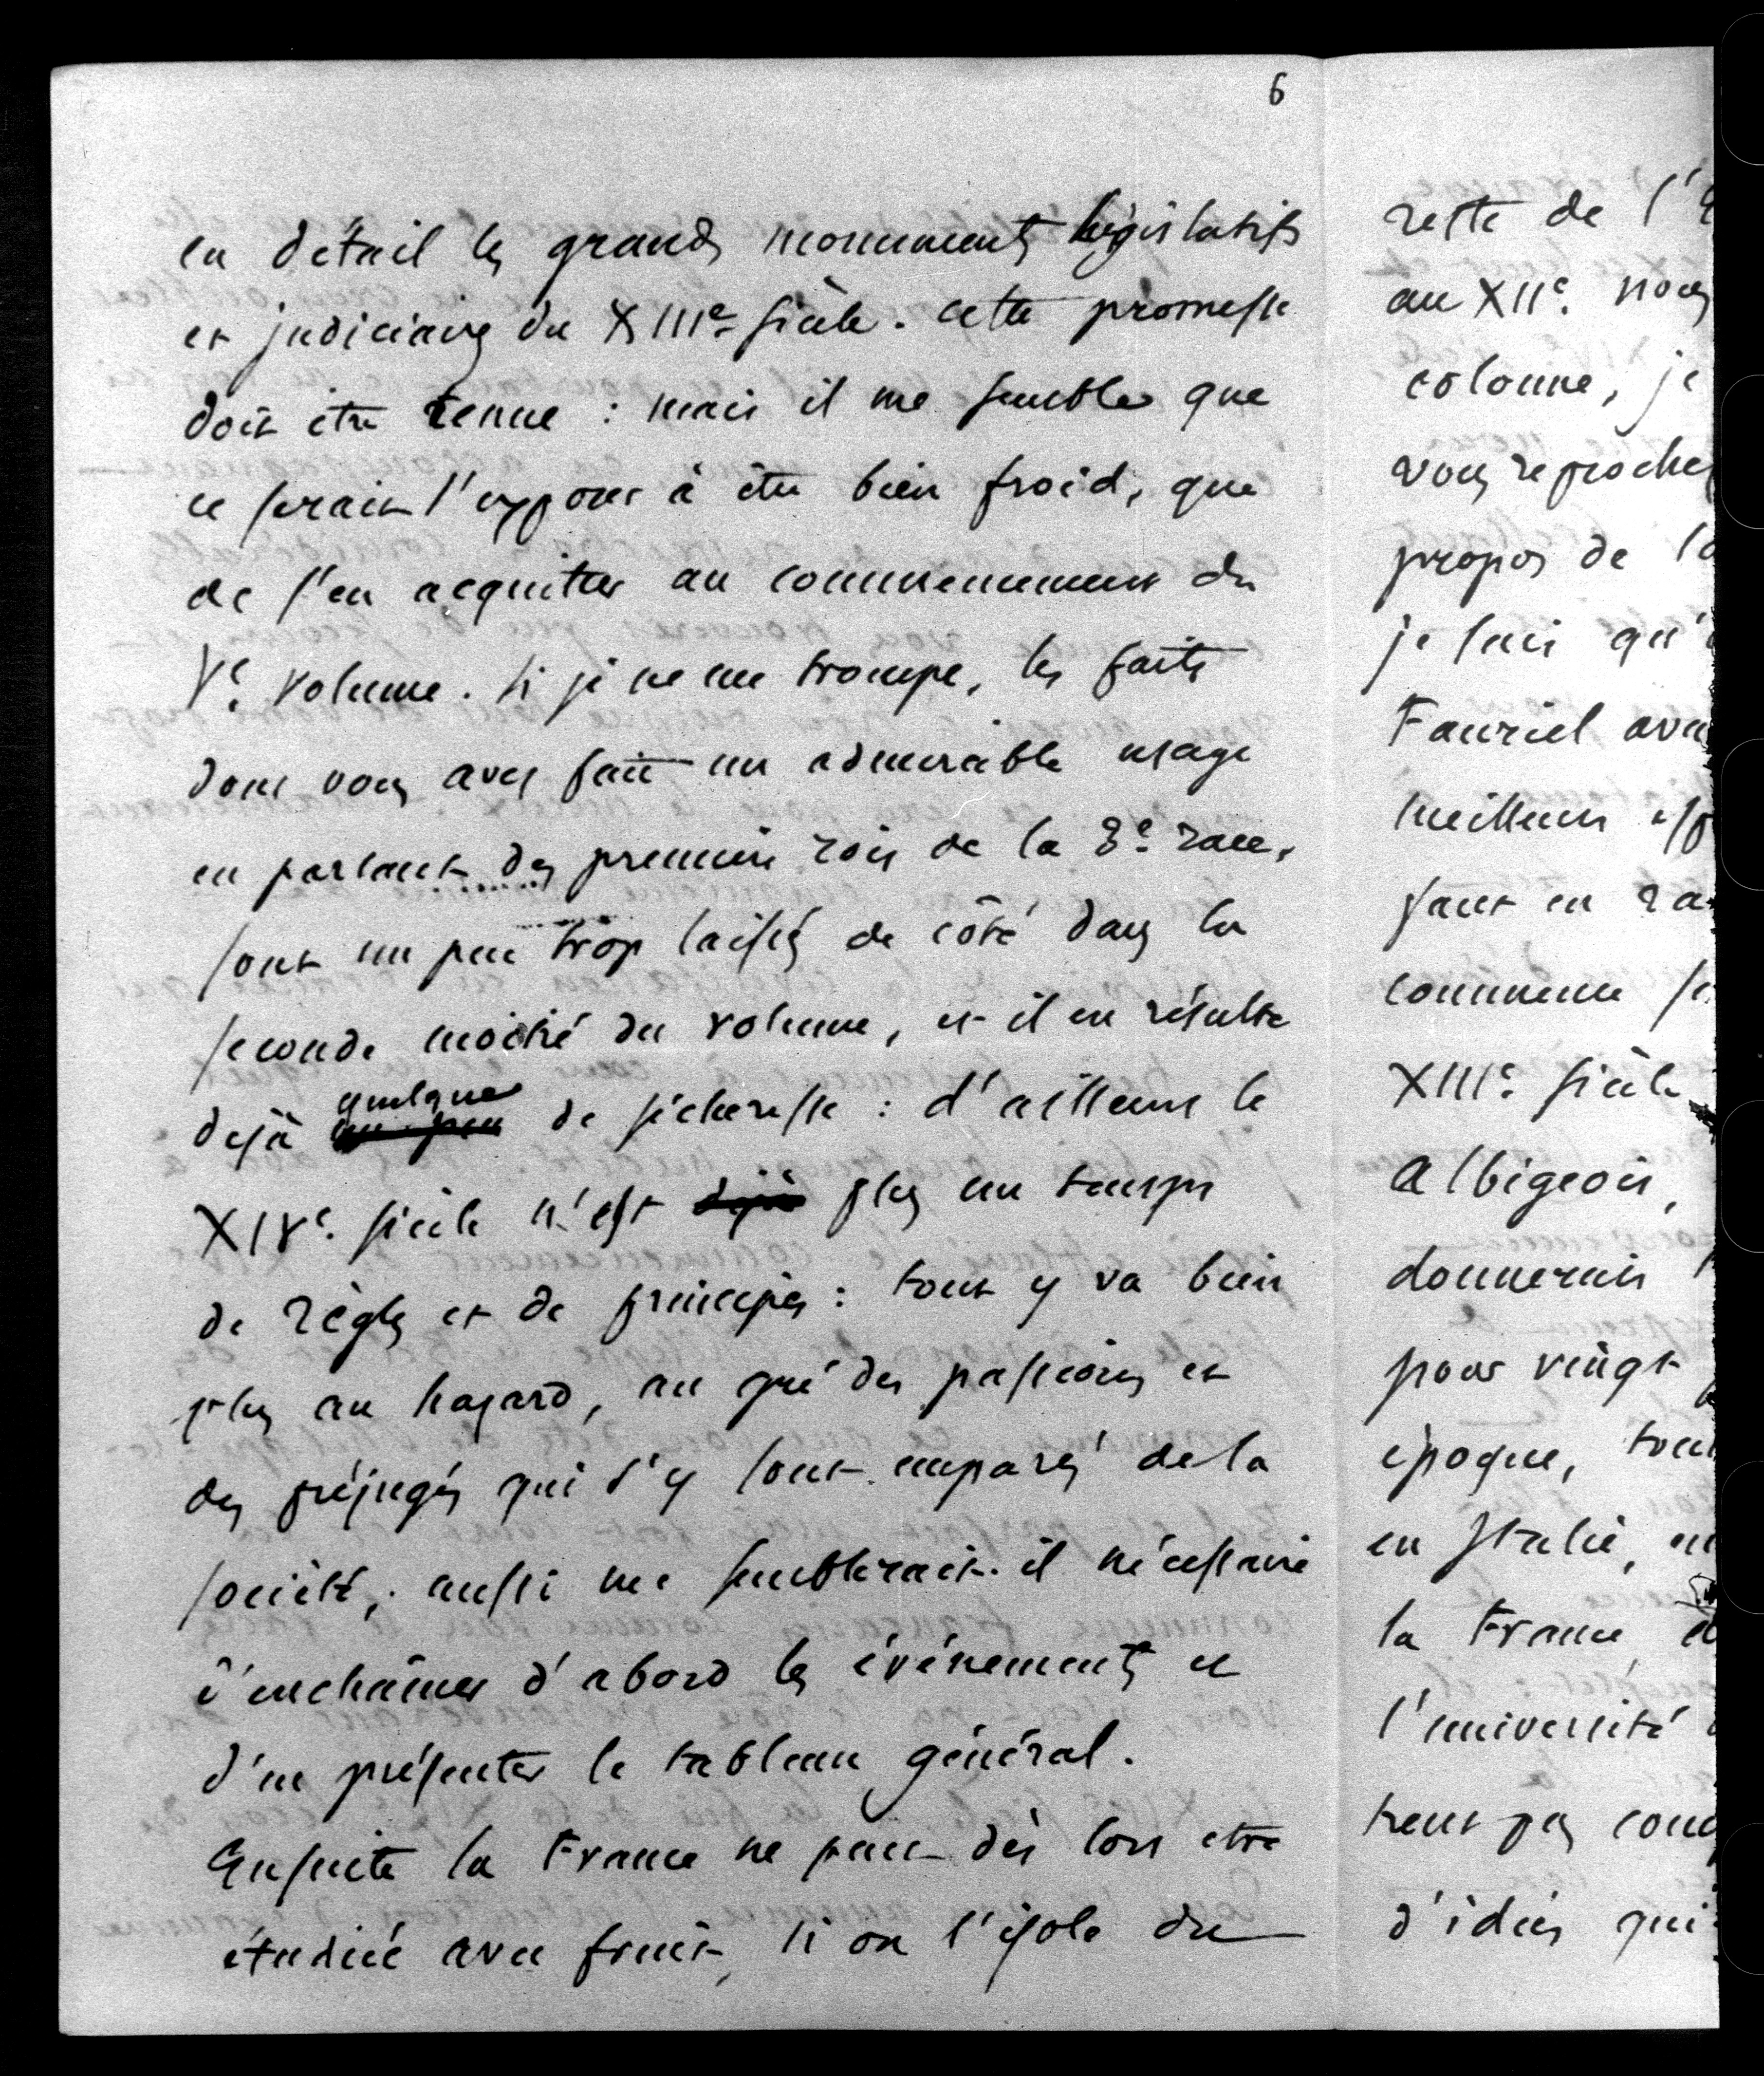 6
en détail les grands monuments législatifs
et judiciaires du XIIIe siècle. cette promesse
doit être tenue : mais il me semble que
ce serait s'exposer à être bien froid, que
de s'en acquitter au commencement du
Ve. volume. si je ne me trompe, les faits
dont vous avez fait un admirable usage
en parlant des premiers rois de la 3e. race,
sont un peu trop laissés de côté dans la
seconde moitié du volume, et il en résulte
quelque
dejà un peu de sécheresse : d'ailleurs le
XIVe. siècle n'est déjà plus un temps
de règles et de principes : tout y va bien
plus au hazard, au gré des passions et
des préjugés qui s'y sont emparés de la
société,. aussi me semblerait-il nécessaire
d'enchaîner d'abord les événements et
d'en présenter le tableau général.
Ensuite la France ne peut dès lors etre
étudiée avec fruit, si on l'isole du
reste de l'E
au XIIe. nous
colonne, je
vous reproches
propos de la
je sais qu'
Fauriel ava
meilleurs esp
faut en ra
commence se
XIIIe. siècle
Albigeois,
donnerais
pour vingt
époque, tou
en Italie, en
la France, et
l'université
tent pas cou
d'idées qui